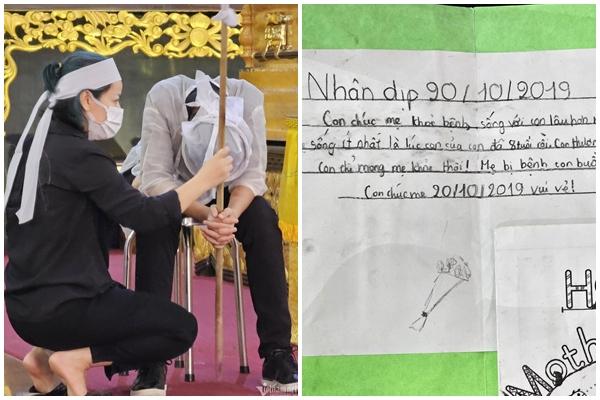 Nhân dịp 20/10/2019
Con chúc mẹ khoẻ bệnh, sống với con lâu hơn
sống ít nhất là lúc con của con đã 8 tuổi rồi. Con thương
Con chỉ mong mẹ khỏe thôi! Mẹ bị bệnh con buồ
Con chúc mẹ 20/10/2019 vui vẻ!
Ha
Moth